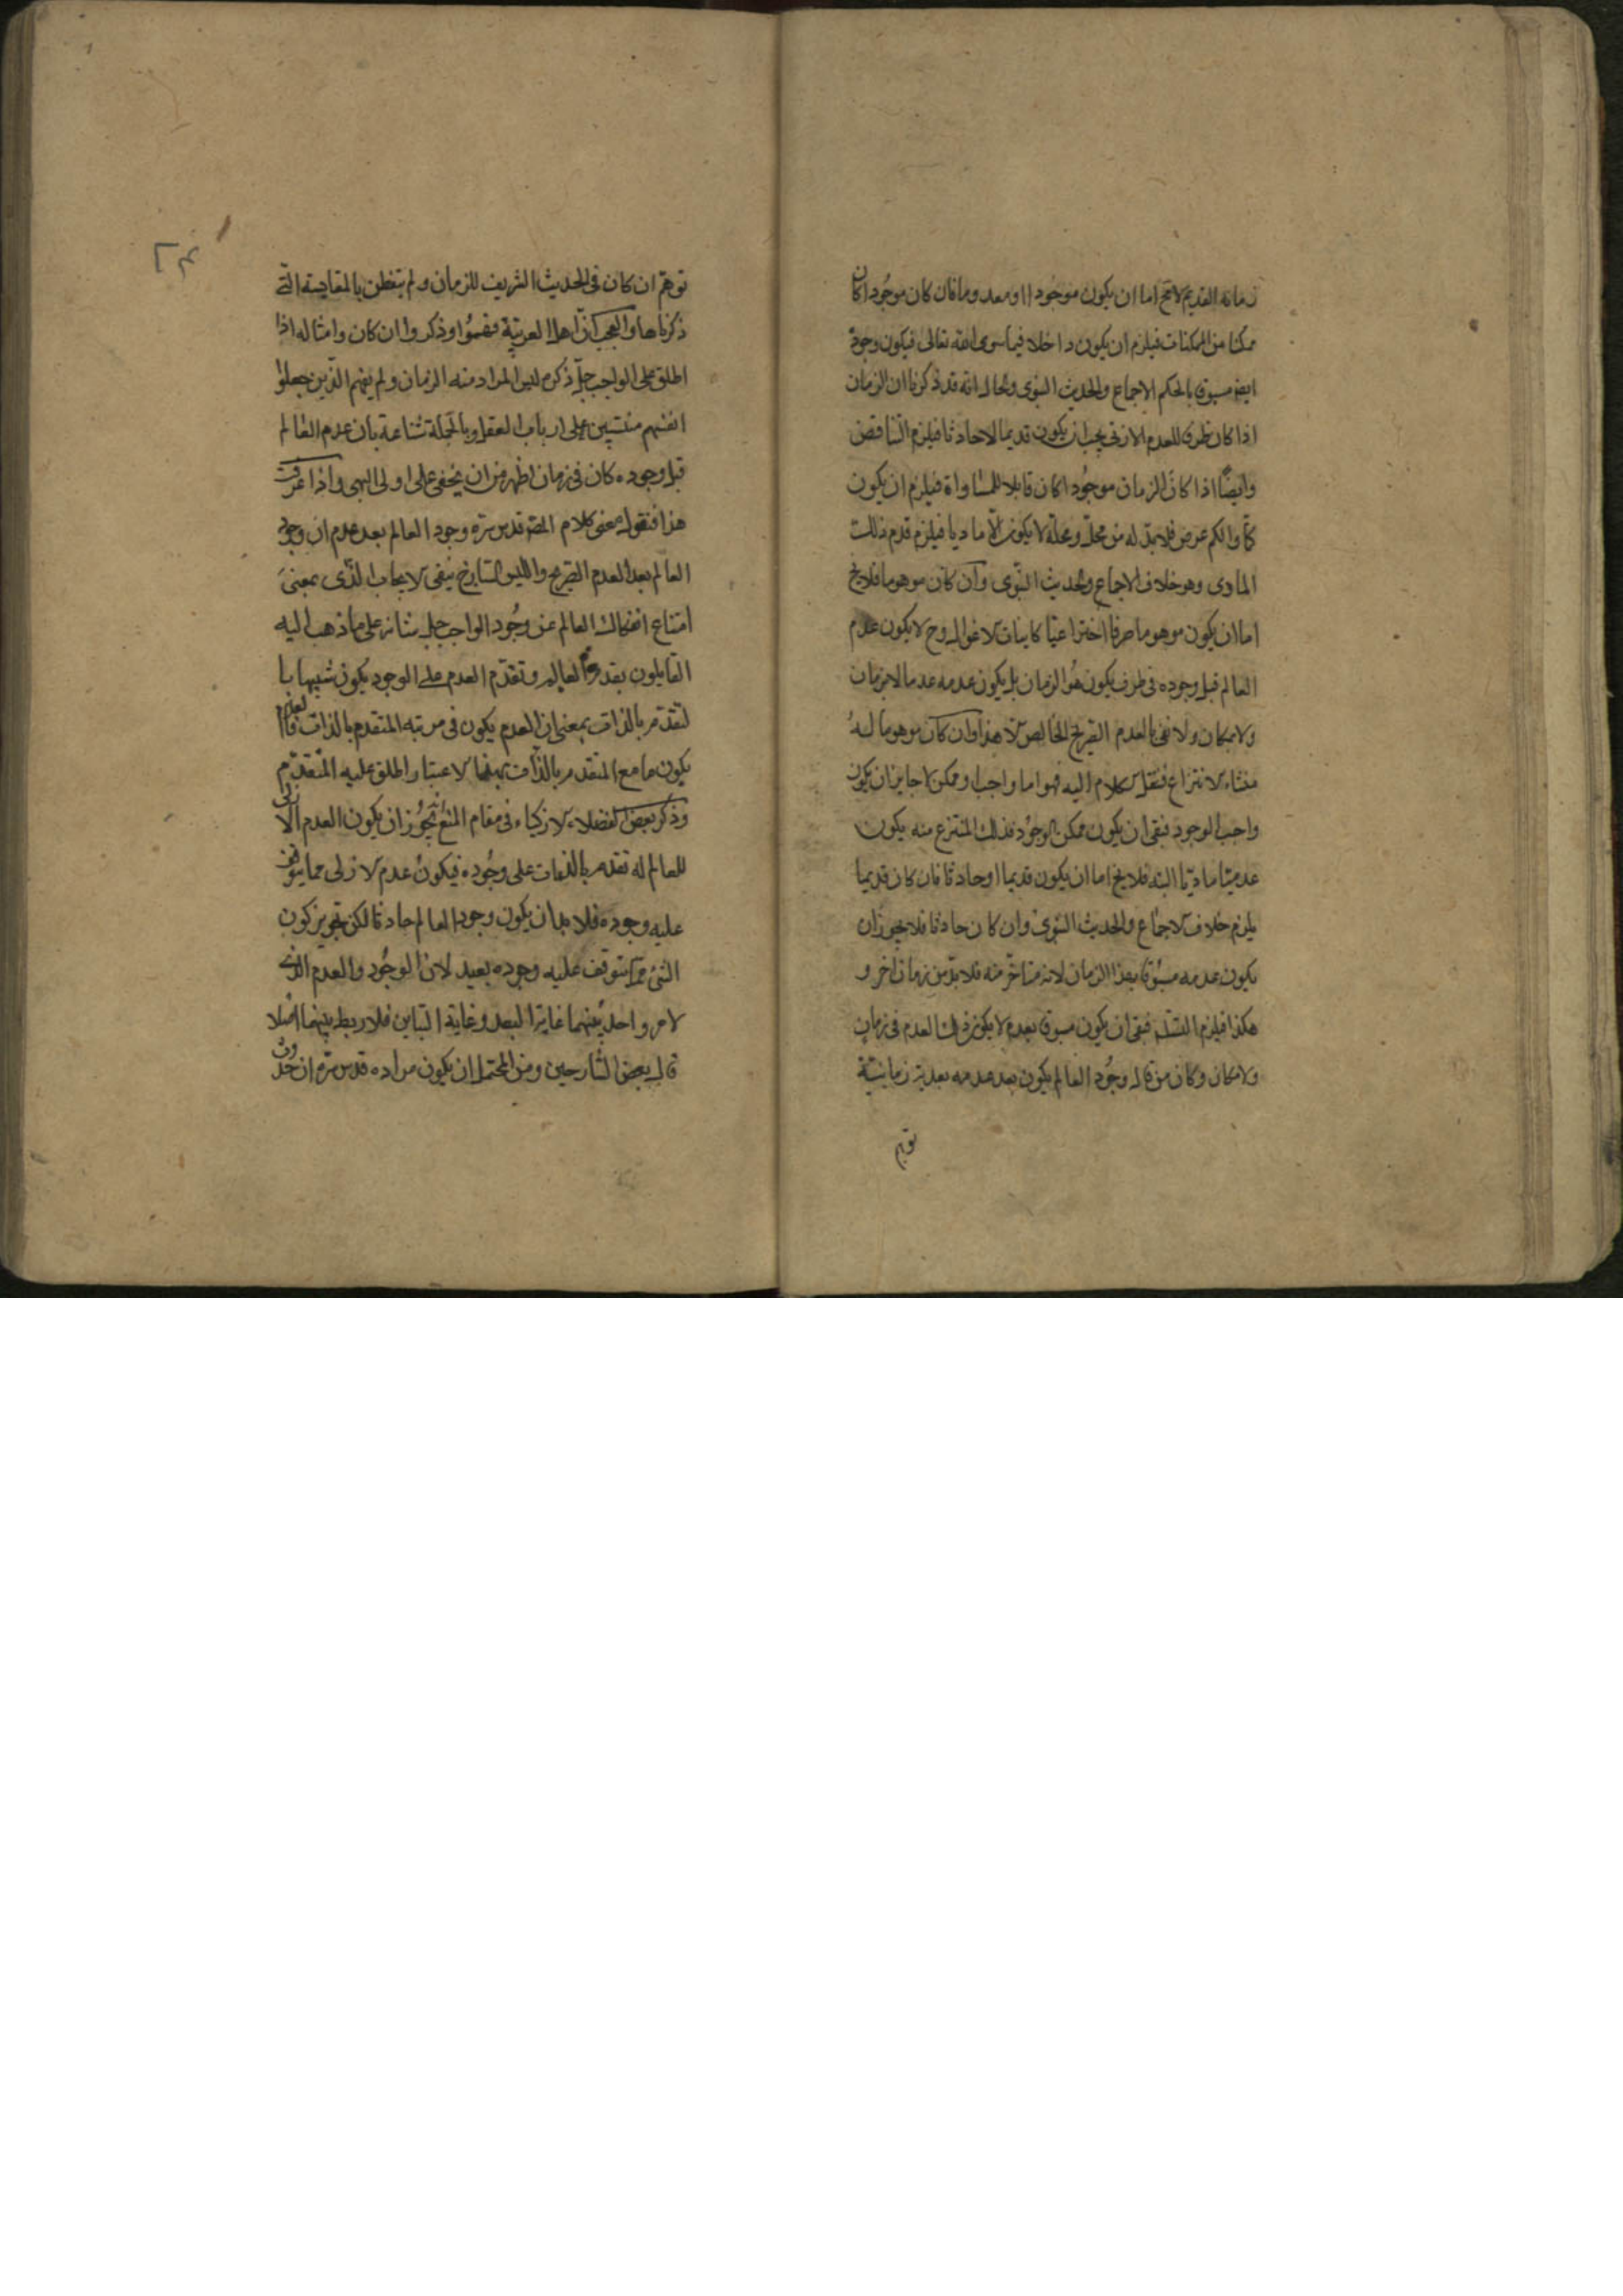 زمانه القديم لا يخ اما ان يكون موجودا او معدوما فان كان موجودا كان
ممكنا من الممكنات فيلزم ان يكون داخلا فيما سوى الله تعالى فيكون وجوده
ايضا مسبوقا بالحكم الاجماع والحديث النبوى والحال انه قد ذكرنا ان الزمان
اذا كان ظرفا للعدم الازلى يجب ان يكون قديما لا حادثا فيلزم التناقض
وايضًا اذا كان الزمان موجودا كان قابلا للمساواة فيلزم ان يكون
كمّا والكم عرض فلا بدّ له من محلّ ومحله لا يكون الّا ماديا فيلزم قدم ذلك
المادى وهو خلاف الاجماع والحديث النبوى وان كان موهوما فلا يخ
اما ان يكون موهوما صرفا اختراعيّا كانياب الاغوال وح لا يكون عدم
العالم قبل وجوده فى ظرف يكون هو الزمان بل يكون عدمه عدما لا بزمان
ولا مكان ولا نفى بالعدم الصريح الخالص الا هذا وان كان موهوما له
منشاء الانتزاع فننقل الكلام اليه فهو اما واجب او ممكن لا جايز ان يكون
واجب الوجود فبقى ان يكون ممكن الوجود فذلك المنتزع منه يكون
ماديّا البته فلا يخ اما ان يكون قديما او حادثا فان كان قديما
يلزم خلاف الاجماع والحديث النبوى وان كان حادثا فلا يجوز ان
يكون عدمه مسبوقا بهذا الزمان لانه متاخّر منه فلا بدّ من زمان اخر و
هكذا فيلزم التسلسل فبقى ان يكون مسبوقا بعدم لا يكون ذلك العدم فى زمان
ولا مكان وكان من قال وجود العالم يكون بعد عدمه بعدية زمانيّة
توهم
توهّم ان كان فى الحديث الشريف للزمان ولم يتفطن بالمقايسة التى
ذكرناها والعجب انّ اهل العربيّة وذكروا ان كان وامثاله اذا
اطلق على الواجب جلّ ذكره ليس المراد منه الزمان ولم يفهم الذين جعلوا
انفسهم منتسبين على ارباب العقل وبالجملة شناعة بان عدم العالم
قبل وجوده كان فى زمان اظهر من ان يخفى على اولى النهى واذا عرفت
هذا فنقول معنى كلام المص قدس سرّه وجود العالم بعد عدم ان وجود
العالم بعد العدم الصريح والليس الساذج ينفى الايجاب الذى بمعنى
امتناع انفكاك العالم عن وجود الواجب جل شانه على ما ذهب اليه
القايلون بقدم العالم وتقدّم العدم على الوجود يكون شبيها با
لتقدّم بالذات بمعنى ان العدم يكون فى مرتبه المتقدم بالذات فالعدم
يكون ما مع المتقدم بالذات بهذا الاعتبار واطلق عليه المتقدّم
وذكر بعض الفضلاء الازكياء فى مقام المنع تجوز ان يكون العدم الازلى
للعالم له تقدم بالذات على وجوده فيكون عدم الازلى مما يتوقف
عليه وجوده فلا بد ان يكون وجود العالم حادثا لكن تجويز كون
الشئ مما يتوقف عليه وجوده بعيد لان الوجود والعدم الذى
لامر واحد بينهما غاية البعد وغاية التباين فلا ربط بينهما اصلا
قال بعض الشارحين ومن المحتمل ان يكون مراده قدس سرّه ان حدوث